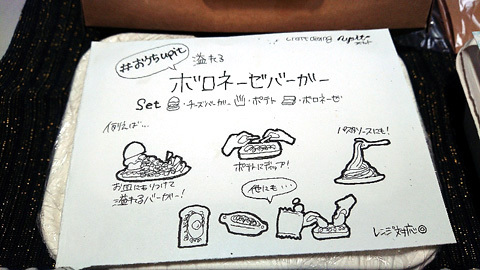 #おうちupit
craft dining
溢れる
ボロネーゼバーガー
Set ・チーズバーガー ・ポテト ・ボロネーゼ
例えば…
お皿にもりつけて
溢れるバーガー！
ポテトにディップ！
パスタソースにも！
他にも…
レンジ対応